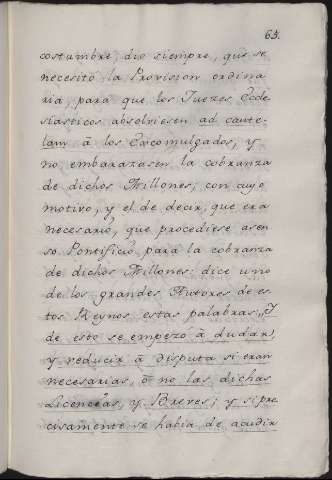 65.
costumbre, dio siempre, que se
necesitó la Provision ordina
ria, para que los Juezes Ecle
siasticos absolviesen ad caute
lam à los Excomulgados, y
no embarazasen la cobranza
de dichos Millones; con cuyo
motivo, y el de decir, que era
necesario, que procediese asen
so Pontificio para la cobranza
de dichos Millones: dice uno
de los grandes Autores de es
tos Reynos estas palabras: "I
de esto se empezó à dudar,
y reducir à disputa si eran
necesarias, ò no las dichas
Licencias, y Breves; y si pre
cisamente se habia de acudir